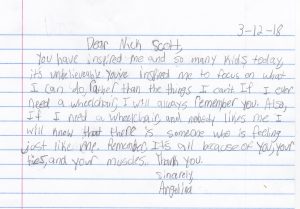 3-12-18
Dear Nick Scott,
You have inspired me and so many kids today,
it's unbelieveable. You've inspired me to focus on what
I can do, rather than the things I can't. If I ever
need a wheelchair, I will always remember you. Also,
If I need a wheelchair, and nobody likes me I
will know that there is someone who is feeling
just like me. Remember, It's all because of you, your
, and your muscles. Thank you.
Sincerely,
Angelina